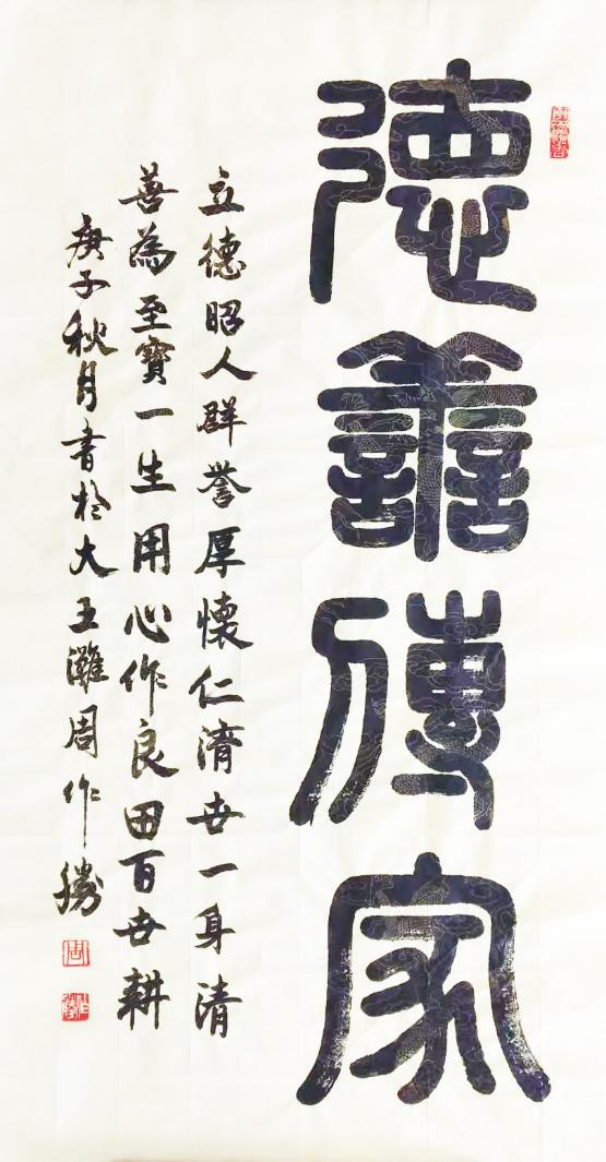 德善傳家
立德昭人群譽厚懷仁濟世一身清
善為至寶一生用心作良田百世耕
庚子秋月書於大王灘周作勝
周
作勝